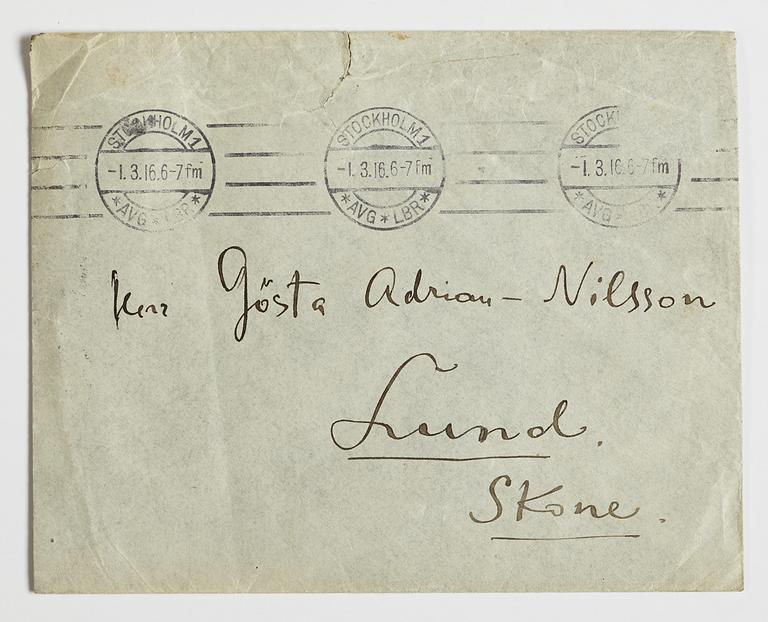 STOCKHOLM 1 STOCKHOLM 1 STOCK
-1. 3.16.6-7 fm -1. 3.16.6-7 fm -1. 3.16.6-7 fm
* AVG * LBR * * AVG * LBR * * AVG *
Herr Gösta Adrian-Nilsson
Lund.
Skone.